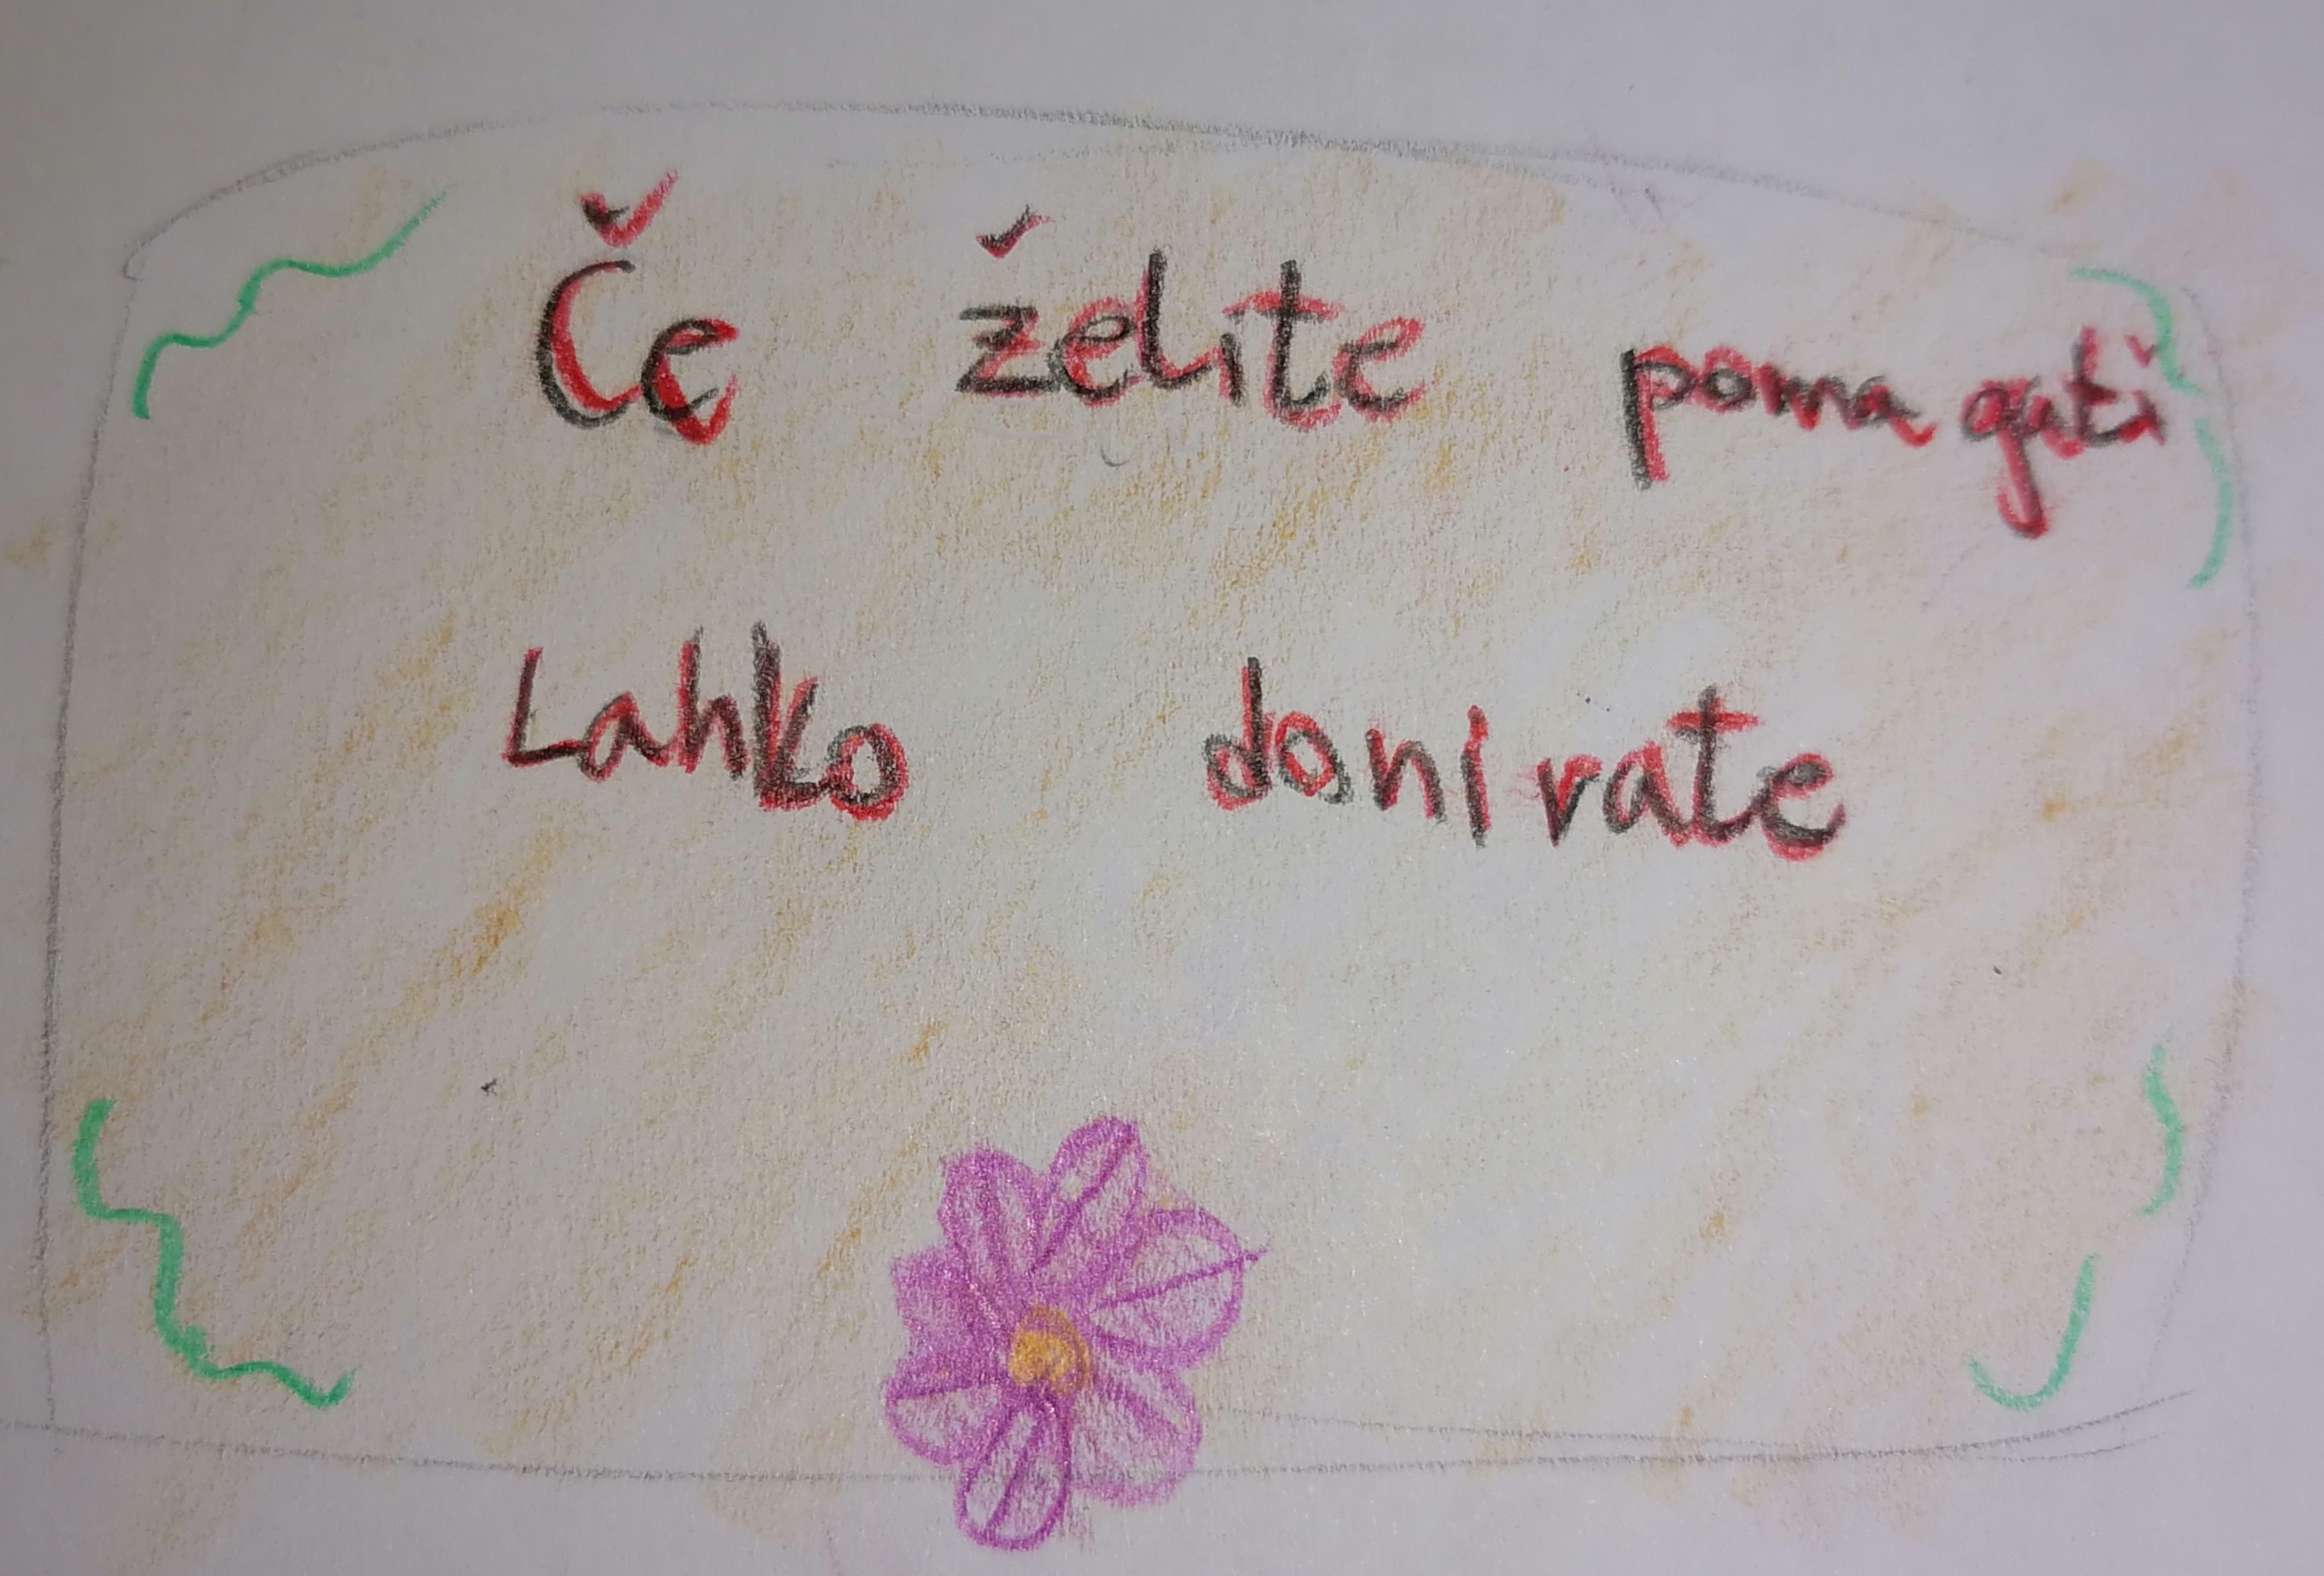 Če želite pomagati
Lahko donirate